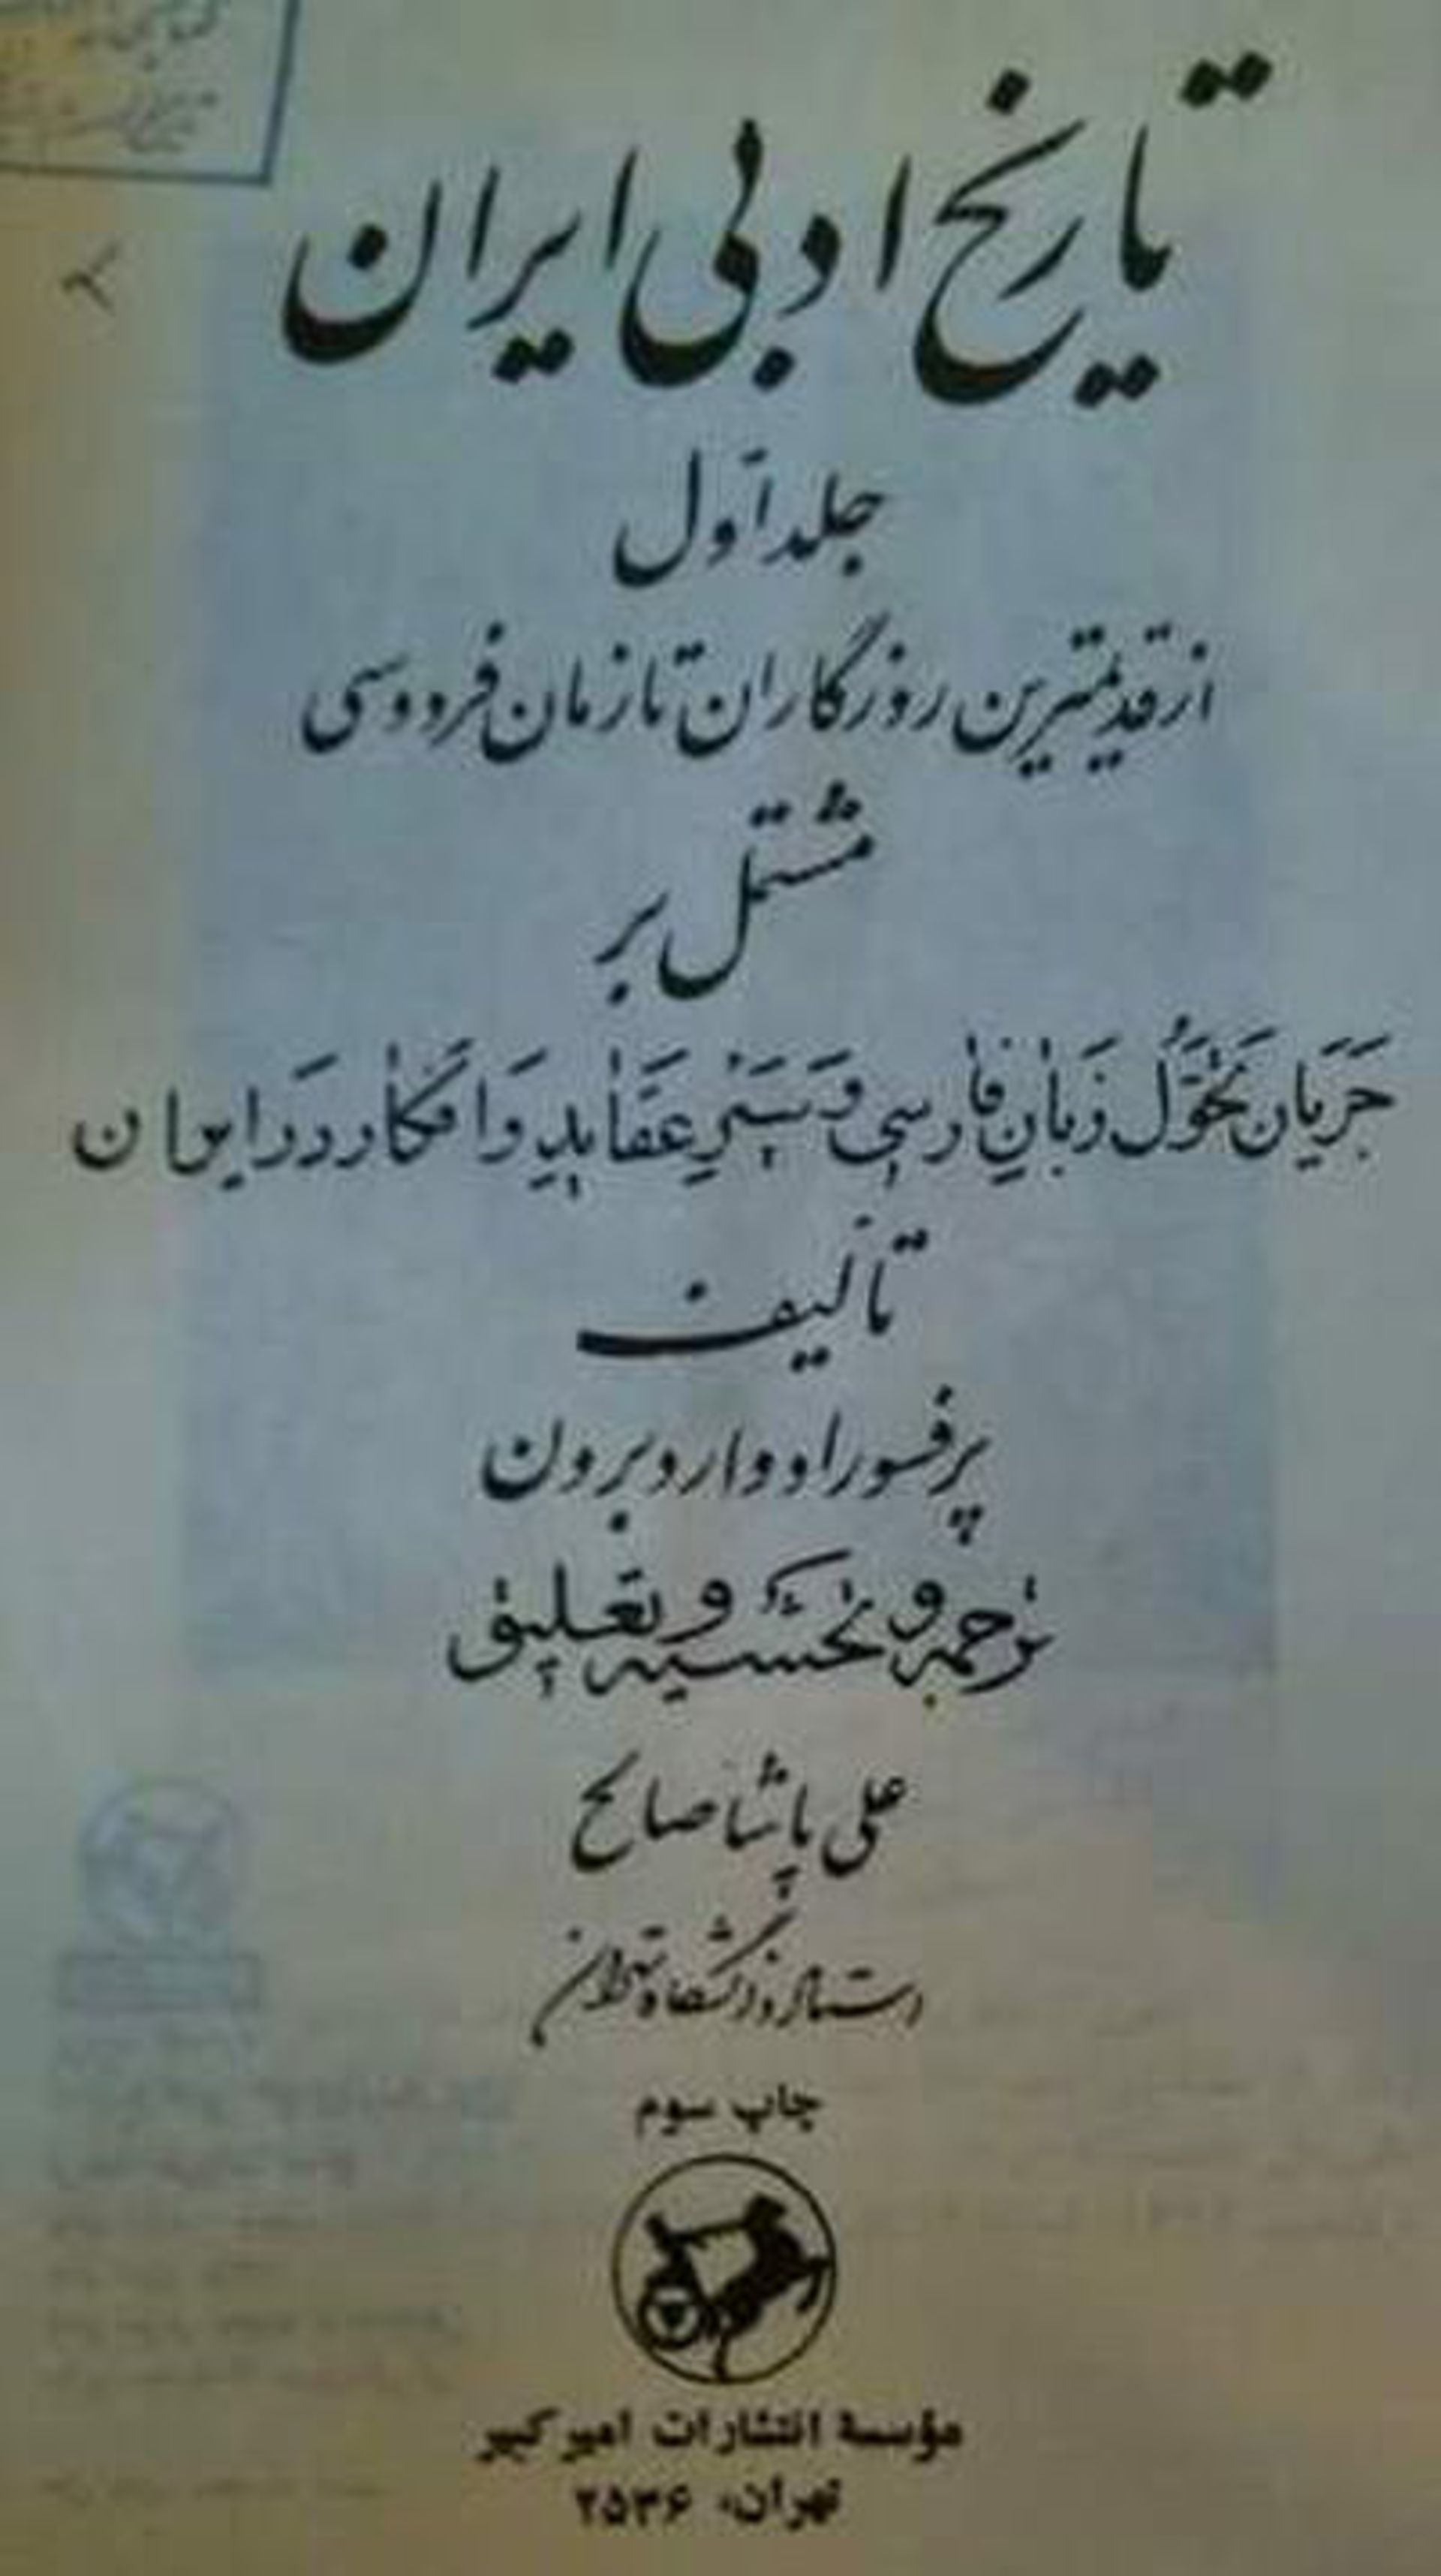 تاریخ ادبی ایران
جلد اوّل
از قدیمترین روزگاران تا زمان فردوسی
مشتمل بر
جَرَیان تَحَوُّل زَبانِ فارسی وَ سَیْرِ عَقاید وَ افکار دَر ایران
تألیف
پرفسور ادوارد برون
ترجمه و تحشیه و تعلیق
علی پاشا صالح
استاد دانشگاه تهران
چاپ سوم
مؤسسهٔ انتشارات امیرکبیر
تهران، ۲۵۳۶